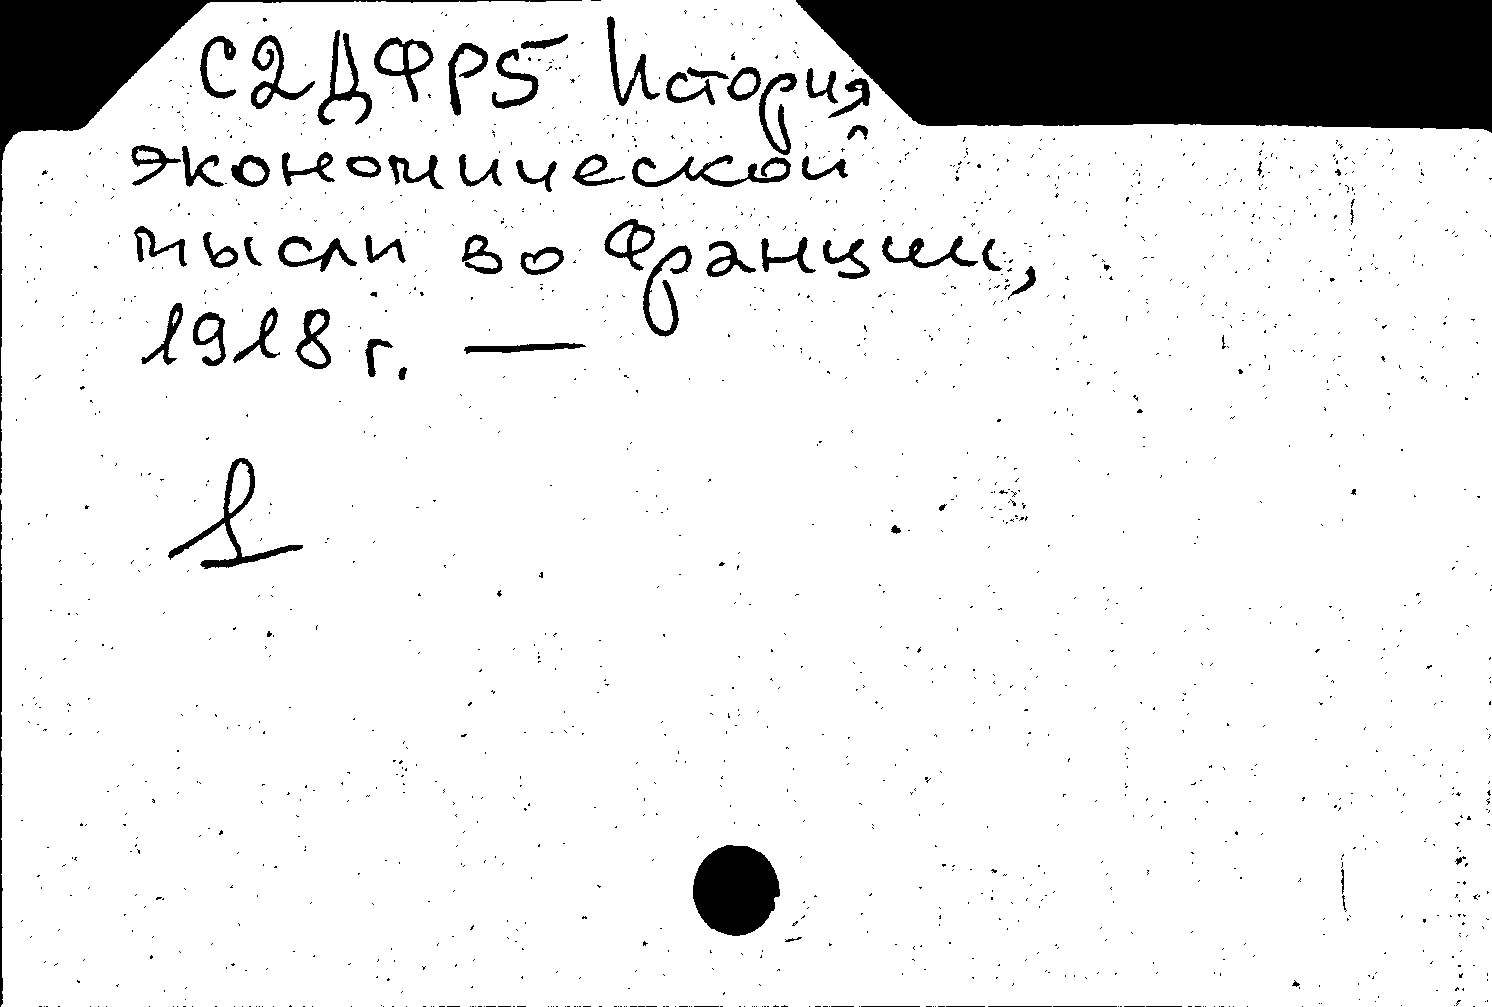 С2ДФР5 История
экономической
мысли во Франции,
1918 г. —
1